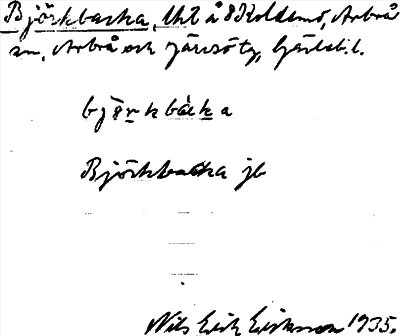 Björkbacka, lht å 8 Koldemo, Arbrå
sn, Arbrå och Järvsö tg, Gävleb. l.
björkbàka
Björkbacka jb
Nils Erik Eriksson 1935.